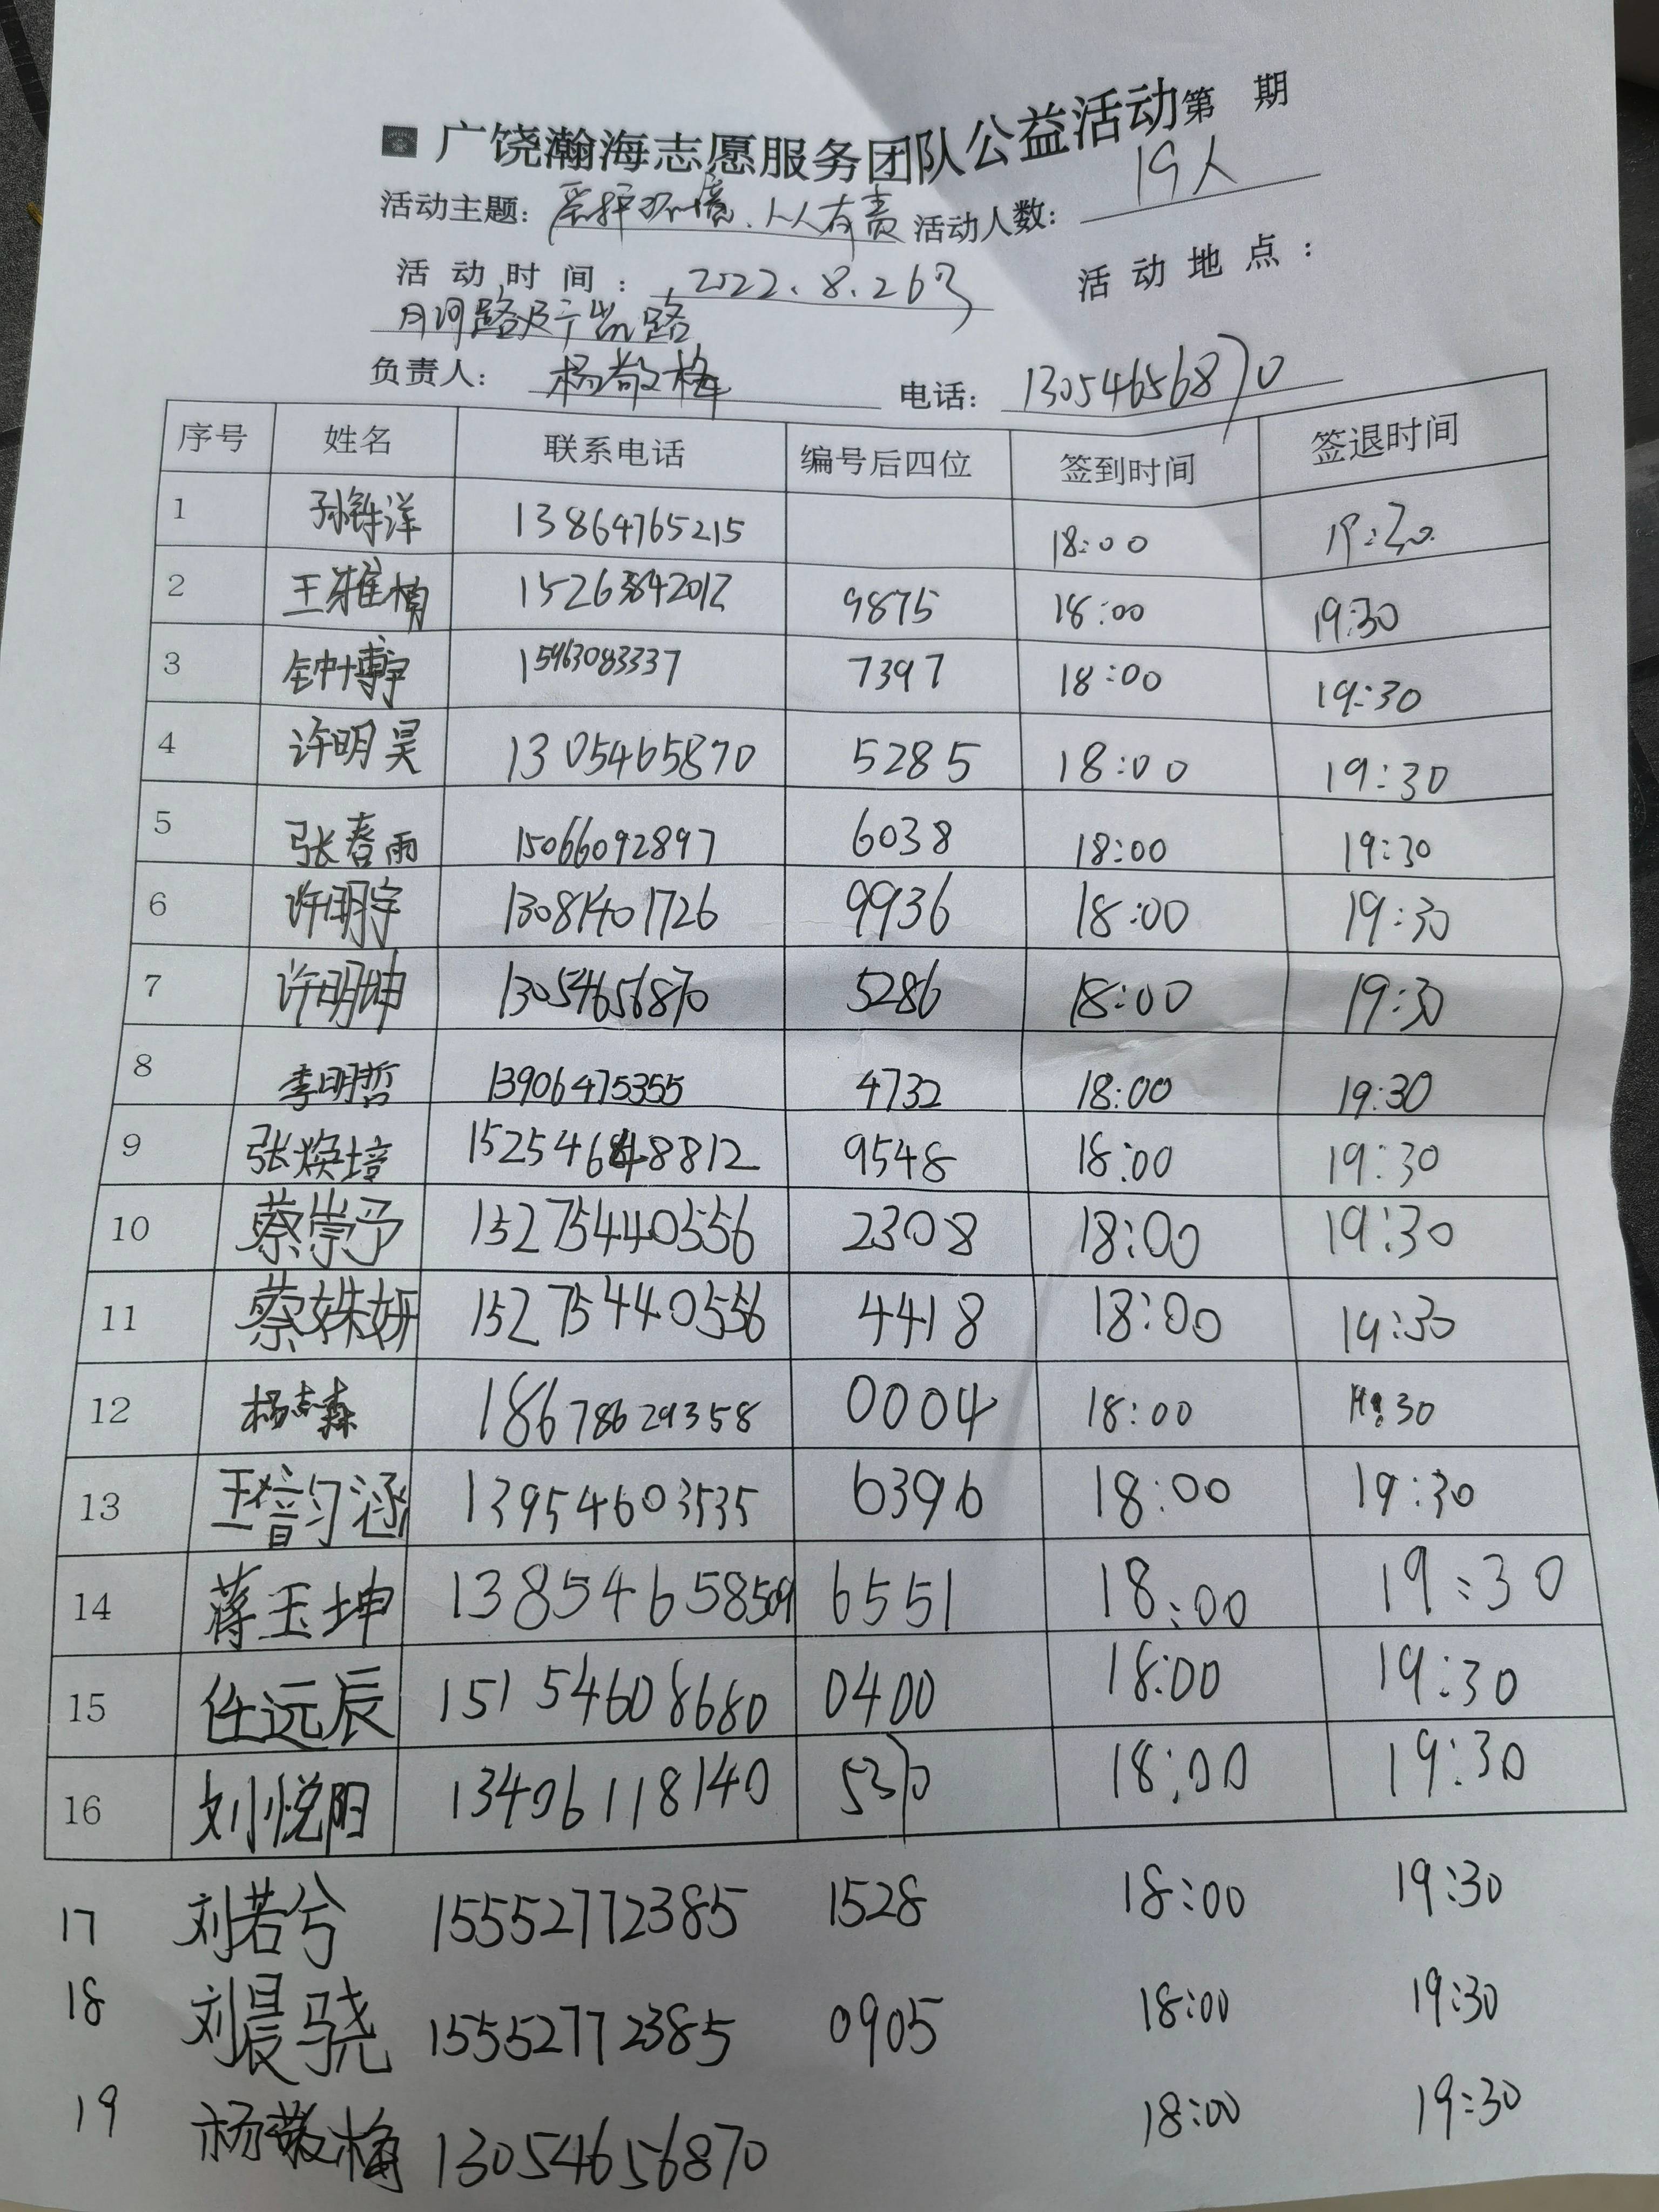 广饶瀚海志愿服务团队公益活动第 期
活动主题：爱护环境、人人有责 活动人数：19人
活动时间：2022.8.26号 活动地点：
月河路及 路
负责人：杨敬梅 电话：13054656870
序号 姓名 联系电话 编号后四位 签到时间 签退时间
1 孙铄洋 13864765215 18:00 19:30
2 王雅楠 15263842012 9875 18:00 19:30
3 钟博宇 15963083337 7397 18:00 19:30
4 许明昊 1305465870 5285 18:00 19:30
5 张春雨 15066092897 6038 18:00 19:30
6 许明宇 13081401726 9936 18:00 19:30
7 许明坤 13054656870 5286 18:00 19:30
8 李明哲 13906475355 4732 18:00 19:30
9 张焕培 9548 18:00 19:30
10 蔡崇予 15275440556 2308 18:00 19:30
11 蔡姝妍 15275440556 4418 18:00 19:30
12 杨志森 18678629358 0004 18:00 19:30
13 王韵涵 13954603535 6396 18:00 19:30
14 蒋玉坤 13854658509 6551 18:00 19:30
15 任远辰 15154608680 0400 18:00 19:30
16 刘悦阳 13406118140 5370 18:00 19:30
17 刘若兮 15552772385 1528 18:00 19:30
18 刘晨骁 15552772385 0905 18:00 19:30
19 杨敬梅 13054656870 18:00 19:30